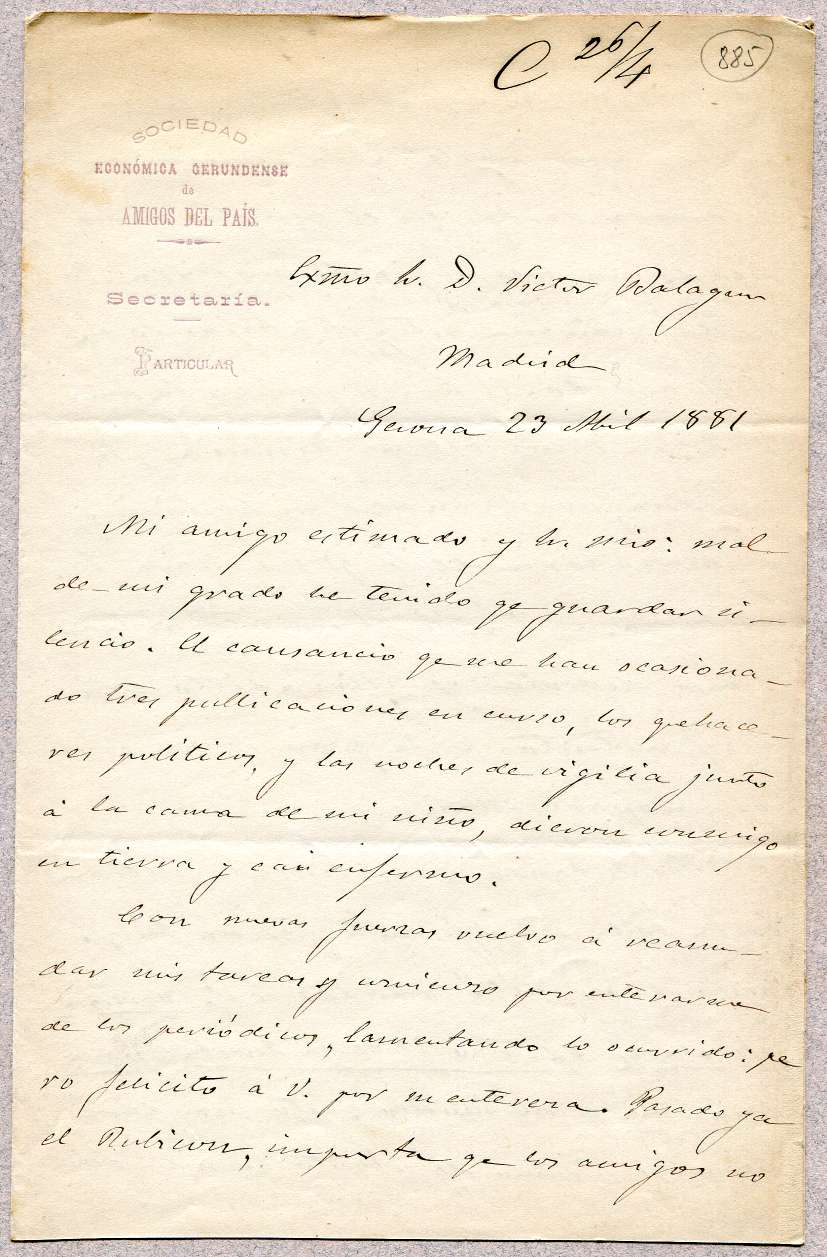 C 26/4 885
SOCIEDAD
ECONÓMICA GERUNDENSE
de
AMIGOS DEL PAÍS.
Secretaría.
PARTICULAR
Exmo Sr. D. Victor Balaguer
Madrid
Gerona 23 Abril 1881
Mi amigo estimado y Sr. mio: mal
de mi grado he tenido qe guardar si-
lencio. El cansancio qe me han ocasiona-
do tres publicaciones en curso, los quehace-
res politicos, y las noches de vigilia junto
á la cama de mi niño, dieron conmigo
en tierra y caí enfermo.
Con nuevas fuerzas vuelvo á reanu-
dar mis tareas y comienzo por enterarme
de los periódicos, lamentando lo ocurrido: pe
ro felicito á V. por su entereza. Pasado ya
el Rubicon, importa qe los amigos no